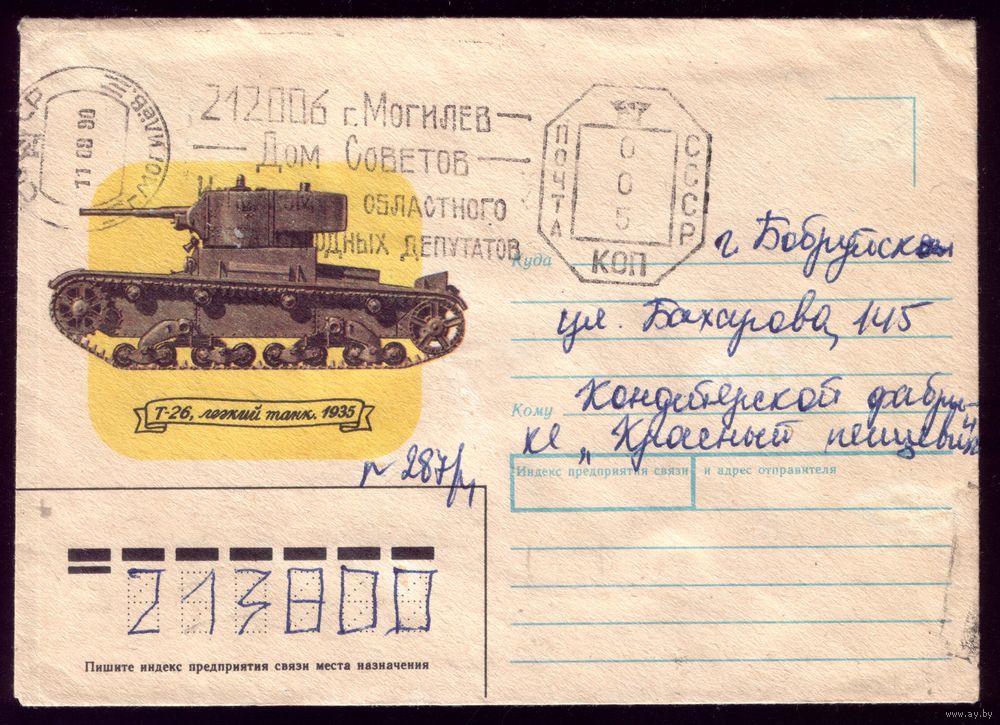 СССР
МОГИЛЁВ
11 09 90
212006 г. Могилев
Дом Советов
областного
депутатов
ПОЧТА
СССР
005
КОП
Куда
г Бобруйск
ул. Бахарова, 145
Кому
Кондитерской фабри-
ке „Красный пищевик
Т-26, легкий танк. 1935
287/
Индекс предприятия связи
и адрес отправителя
213800
Пишите индекс предприятия связи места назначения
www.ay.by